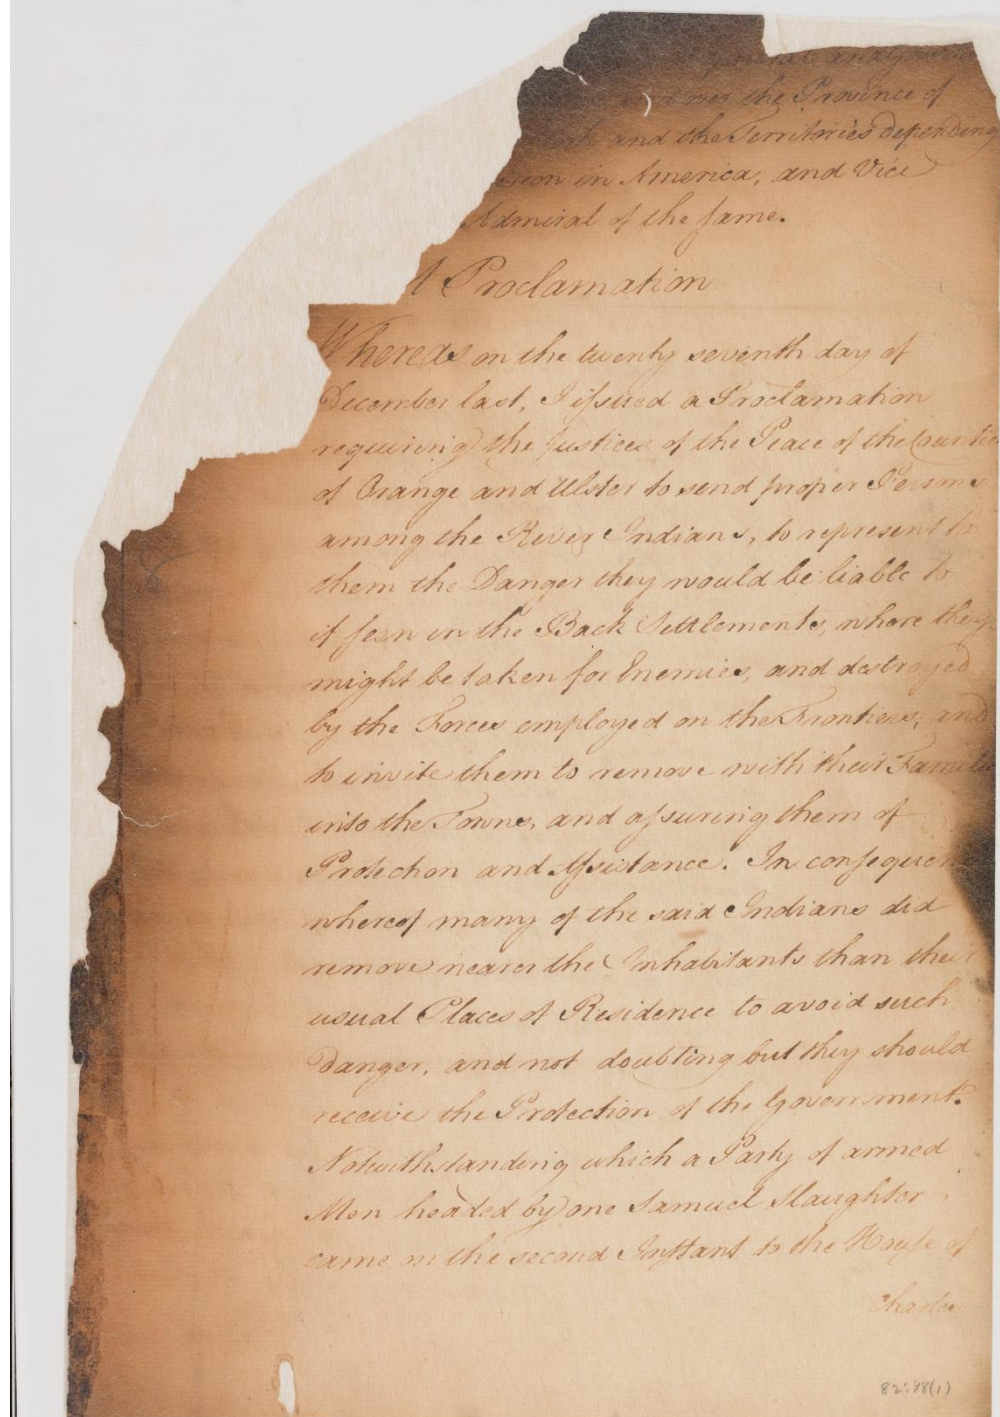 General and Governor
and over the Province of
York and the Territories depending
ereon in America, and Vice
Admiral of the same.
A Proclamation
Whereas on the twenty seventh day of
December last, I issued a Proclamation
requiring the Justices of the Peace of the Countie
of Orange and Ulster to send proper Persons
among the River Indians, to represent to
them the Danger they would be liable to
if seen in the Back Settlements, where they
might be taken for Enemies, and destroyed
by the Forces employed on the Frontiers, and
to invite them to remove with their Familie
into the Towns, and assuring them of
Protection and Assistance. In consequen
whereof many of the said Indians did
remove nearer the Inhabitants than their
usual Places of Residence to avoid such
Danger, and not doubting but they should
receive the Protection of the Government.
Notwithstanding which a Party of armed
Men headed by one Samuel Slaughter
came on the second Instant to the House of
Charles
82:88(1)